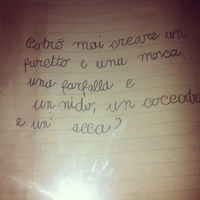 Potrò mai creare un
furetto e una mosca,
una farfalla e
un nido, un coccodr
e un' acca?